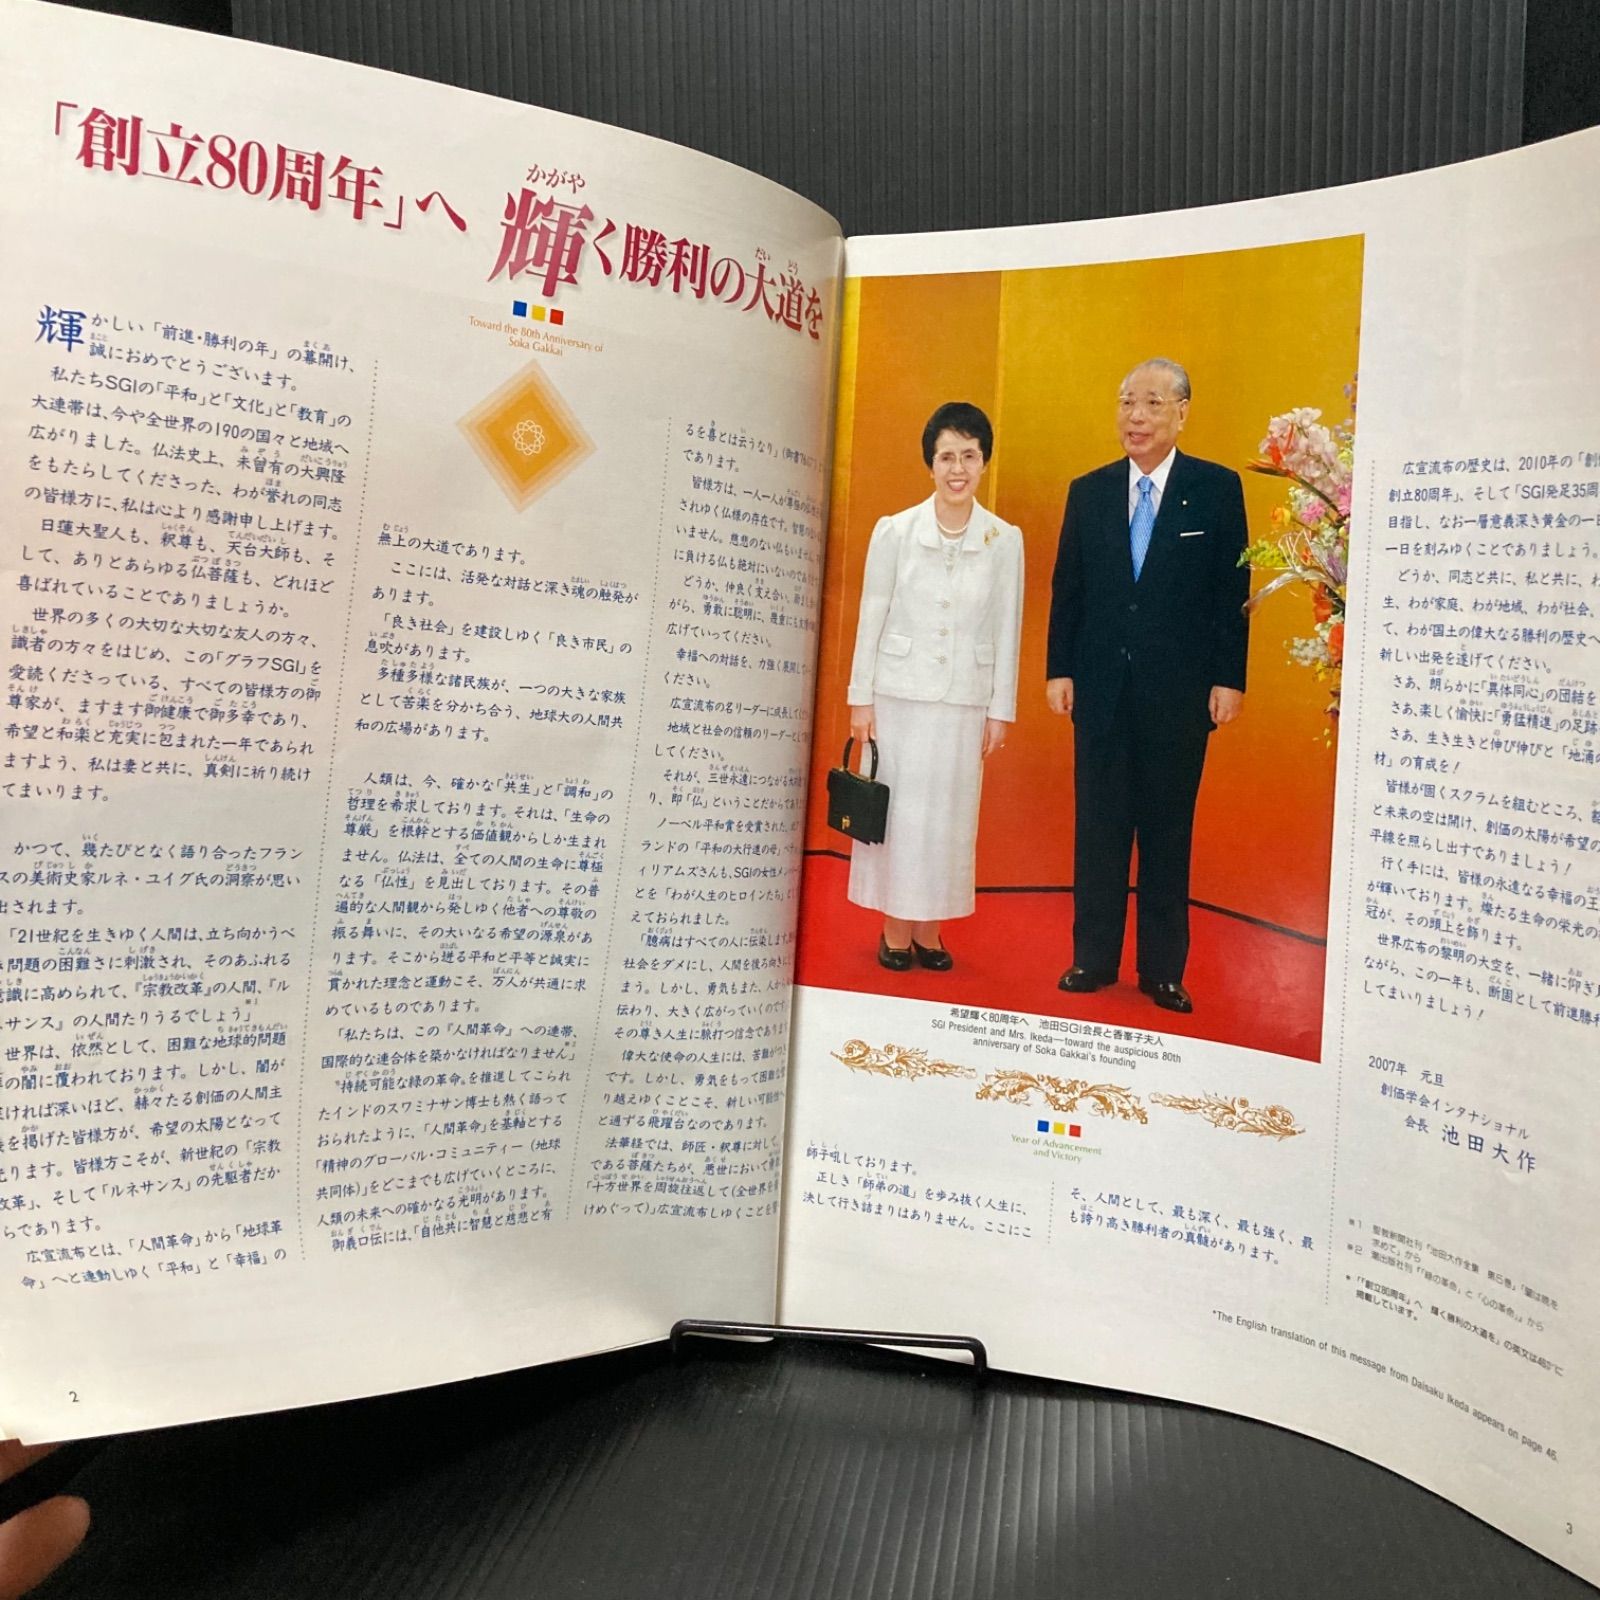 「創立80周年」へ 輝く勝利の大道を
かがや
だい どう
Toward the 80th Anniversary of
Soka Gakkai
輝かしい「前進・勝利の年」の幕開け、
誠におめでとうございます。
私たちSGIの「平和」と「文化」と「教育」の
大連帯は、今や全世界の190の国々と地域へ
広がりました。仏法史上、未曾有の大興隆
をもたらしてくださった、わが誉れの同志
の皆様方に、私は心より感謝申し上げます。
日蓮大聖人も、釈尊も、天台大師も、そ
して、ありとあらゆる仏菩薩も、どれほど
喜ばれていることでありましょうか。
世界の多くの大切な大切な友人の方々、
識者の方々をはじめ、この「グラフSGI」を
愛読くださっている、すべての皆様方の御
尊家が、ますます御健康で御多幸であり、
希望と和楽と充実に包まれた一年であられ
ますよう、私は妻と共に、真剣に祈り続け
てまいります。
かつて、幾たびとなく語り合ったフラン
スの美術史家ルネ・ユイグ氏の洞察が思い
出されます。
「21世紀を生きゆく人間は、立ち向かうべ
き問題の困難さに刺激され、そのあふれる
意識に高められて、『宗教改革』の人間、『ル
ネサンス』の人間たりうるでしょう」
世界は、依然として、困難な地球的問題
の闇に覆われております。しかし、闇が
ければ深いほど、赫々たる創価の人間主
を掲げた皆様方が、希望の太陽となって
ります。皆様方こそが、新世紀の「宗教
改革」、そして「ルネサンス」の先駆者だか
らであります。
広宣流布とは、「人間革命」から「地球革
命」へと連動しゆく「平和」と「幸福」の
無上の大道であります。
ここには、活発な対話と深き魂の触発が
あります。
「良き社会」を建設しゆく「良き市民」の
息吹があります。
多種多様な諸民族が、一つの大きな家族
として苦楽を分かち合う、地球大の人間共
和の広場があります。
人類は、今、確かな「共生」と「調和」の
哲理を希求しております。それは、「生命の
尊厳」を根幹とする価値観からしか生まれ
ません。仏法は、全ての人間の生命に尊極
なる「仏性」を見出しております。その普
遍的な人間観から発しゆく他者への尊敬の
振る舞いに、その大いなる希望の源泉があ
ります。そこから迸る平和と平等と誠実に
貫かれた理念と運動こそ、万人が共通に求
めているものであります。
「私たちは、この『人間革命』への連帯、
国際的な連合体を築かなければなりません」
“持続可能な緑の革命”を推進してこられ
たインドのスワミナサン博士も熱く語って
おられたように、「人間革命」を基軸とする
「精神のグローバル・コミュニティー（地球
共同体）」をどこまでも広げていくところに、
人類の未来への確かなる光明があります。
御義口伝には、「自他共に智慧と慈悲と有
るを喜とは云うなり」（御書
であります。
皆様方は、一人一人が
されゆく仏様の存在です。智慧の
いません。慈悲のない仏もいません。
に負ける仏も絶対にいないのであります。
どうか、仲良く支え合い、励まし
がら、勇敢に聡明に、幾重にも
広げていってください。
幸福への対話を、力強く展開して
ください。
広宣流布の名リーダーに成長して
地域と社会の信頼のリーダーとして
してください。
それが、三世永遠につながる
り、即「仏」ということだからであり
ノーベル平和賞を受賞された、北ア
ランドの「平和の大行進の母」ベティ
ィリアムズさんも、SGIの女性メンバー
とを「わが人生のヒロインたち」と
えておられました。
「臆病はすべての人に伝染します。
社会をダメにし、人間を後ろ向きにして
まう。しかし、勇気もまた、人から
伝わり、大きく広がっていくのです」
その尊き人生に脈打つ信念であります。
偉大な使命の人生には、苦難がつき
です。しかし、勇気をもって困難を
り越えゆくことこそ、新しい可能性へ
と通ずる飛躍台なのであります。
法華経では、師匠・釈尊に対して、
である菩薩たちが、悪世において
「十方世界を周旋往返して（全世界を
けめぐって）」広宣流布しゆくことを
2
希望輝く80周年へ 池田SGI会長と香峯子夫人
SGI President and Mrs. Ikeda—toward the auspicious 80th
anniversary of Soka Gakkai's founding
Year of Advancement
and Victory
師子吼しております。
正しき「師弟の道」を歩み抜く人生に、
決して行き詰まりはありません。ここにこ
そ、人間として、最も深く、最も強く、最
も誇り高き勝利者の真髄があります。
広宣流布の歴史は、2010年の「創価
創立80周年」、そして「SGI発足35周
目指し、なお一層意義深き黄金の一日
一日を刻みゆくことでありましょう。
どうか、同志と共に、私と共に、わ
生、わが家庭、わが地域、わが社会、
て、わが国土の偉大なる勝利の歴史へ
新しい出発を遂げてください。
さあ、朗らかに「異体同心」の団結を
さあ、楽しく愉快に「勇猛精進」の足跡
さあ、生き生きと伸び伸びと「地涌の
材」の育成を！
皆様が固くスクラムを組むところ、
と未来の空は開け、創価の太陽が希望の
平線を照らし出すでありましょう！
行く手には、皆様の永遠なる幸福の王
が輝いております。燦たる生命の栄光の
冠が、その頭上を飾ります。
世界広布の黎明の大空を、一緒に仰ぎ
ながら、この一年も、断固として前進勝利
してまいりましょう！
2007年 元旦
創価学会インタナショナル
会長 池田大作
※1 聖教新聞社刊『池田大作全集 第5巻』「闇は暁を
求めて」から
※2 潮出版社刊『「緑の革命」と「心の革命」』から
* 「「創立80周年」へ 輝く勝利の大道を」の英文は46㌻に
掲載しています。
*The English translation of this message from Daisaku Ikeda appears on page 46.
3